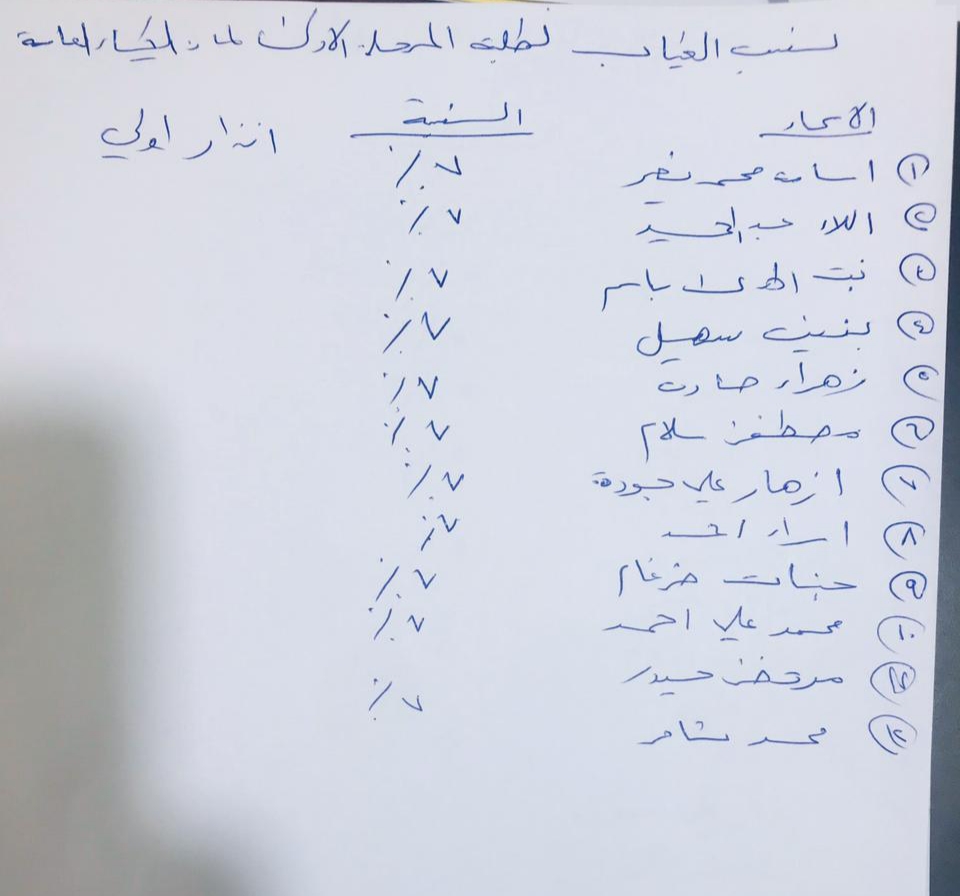 نسب الغياب لطلبة المرحلة الاولى لمادة الكيمياء العامة
الاسماء النسبة انذار اولي
١ محمد ٧٪
٢ الاء عبد الحسيد ٧٪
٣ بنت الهدى باسم ٧٪
٤ بنين سهيل ٧٪
٥ زهراء صادق ٧٪
٦ مصطفى سلام ٧٪
٧ ازهار علي جودة ٧٪
٨ اسراء احمد ٧٪
٩ جنات ضرغام ٧٪
١٠ محمد علي احمد ٧٪
مرتضى حيدر ٧٪
محمد